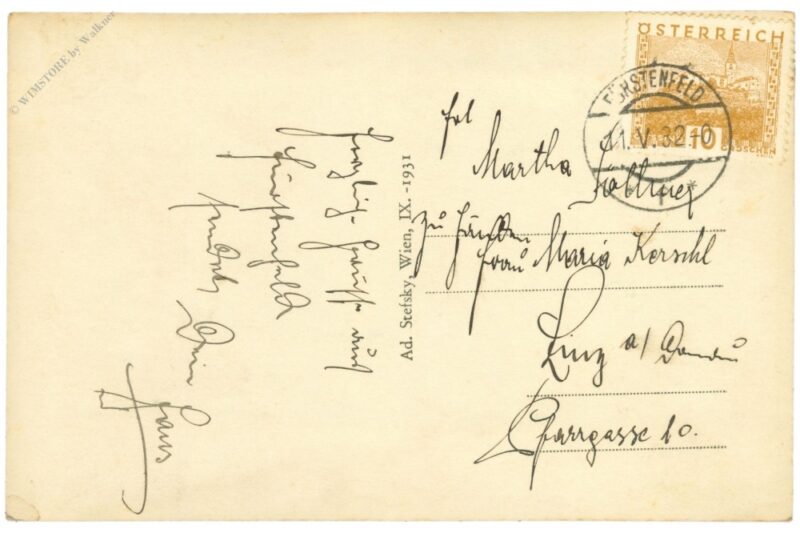 © WIMSTORE by Walkner
Herzliche Grüsse aus
Fürstenfeld
sendet Dein
Hans
Ad. Stefsky, Wien, IX. -1931
ÖSTERREICH
10 GROSCHEN
FÜRSTENFELD
11.V.32-0
* 1 *
Frl
Martha
zu Händen
Frau Maria Kerschl
Linz a/ Donau
Pfarrgasse 10.